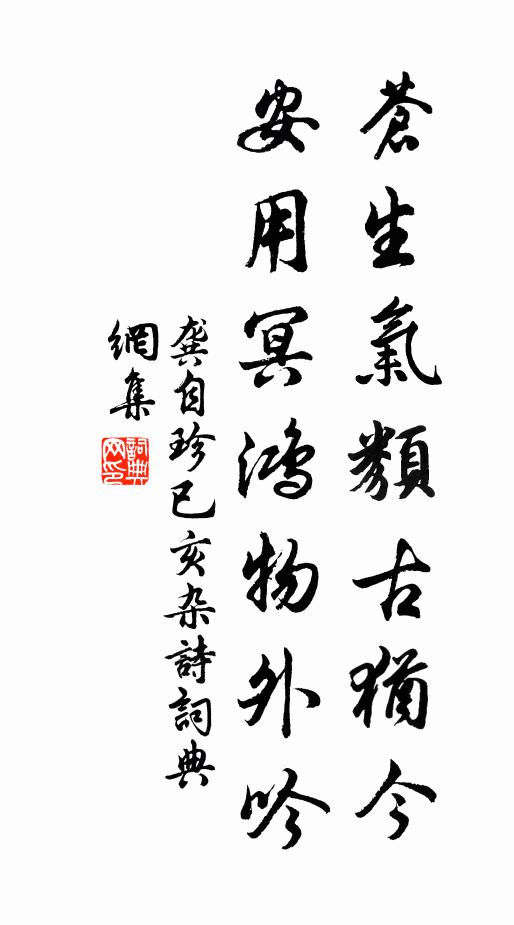 蒼生氣類古猶今
安用冥鴻物外吟
龔自珍己亥杂詩詞典
網集
詞典網印